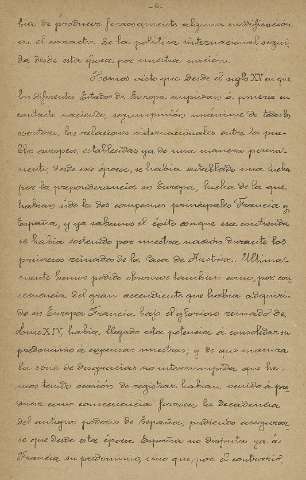 - 6 -
bia de producir forzosamente alguna modificacion
en el caracter de la politica internacional segui-
da desde esta época por nuestra nacion.
Hemos visto que desde el siglo XV en que
los diferentes Estados de Europa empiezan á ponerse en
contacto naciendo, segun opinión unanime de todos los
escritores, las relaciones internacionales entre los pue-
blos europeos, establecidas ya de una manera perma-
nente desde esa época, se habia entablado una lucha
por la preponderancia en Europa, lucha de la que
habian sido los dos campeones principales Francia y
España, y ya sabemos el éxito conque esa contienda
se habia sostenido por nuestra nación durante los
primeros reinados de la Casa de Austria. Ultima-
mente hemos podido observar tambien como, por con-
secuencia del gran ascendiente que habia adquiri-
do en Europa Francia bajo el glorioso reinado de
Luis XIV, habia llegado esta potencia á consolidar su
predominio á expensas nuestras; y de esa manera
la série de desgracias no interrumpida que he-
mos tenido ocasión de registrar, habian venido á pro-
ducir como consecuencia forzosa la decadencia
del antiguo poderio de España, pudiendo asegurar-
se que desde esta época España no disputa ya á
Francia su predominio, sino que, por el contrario